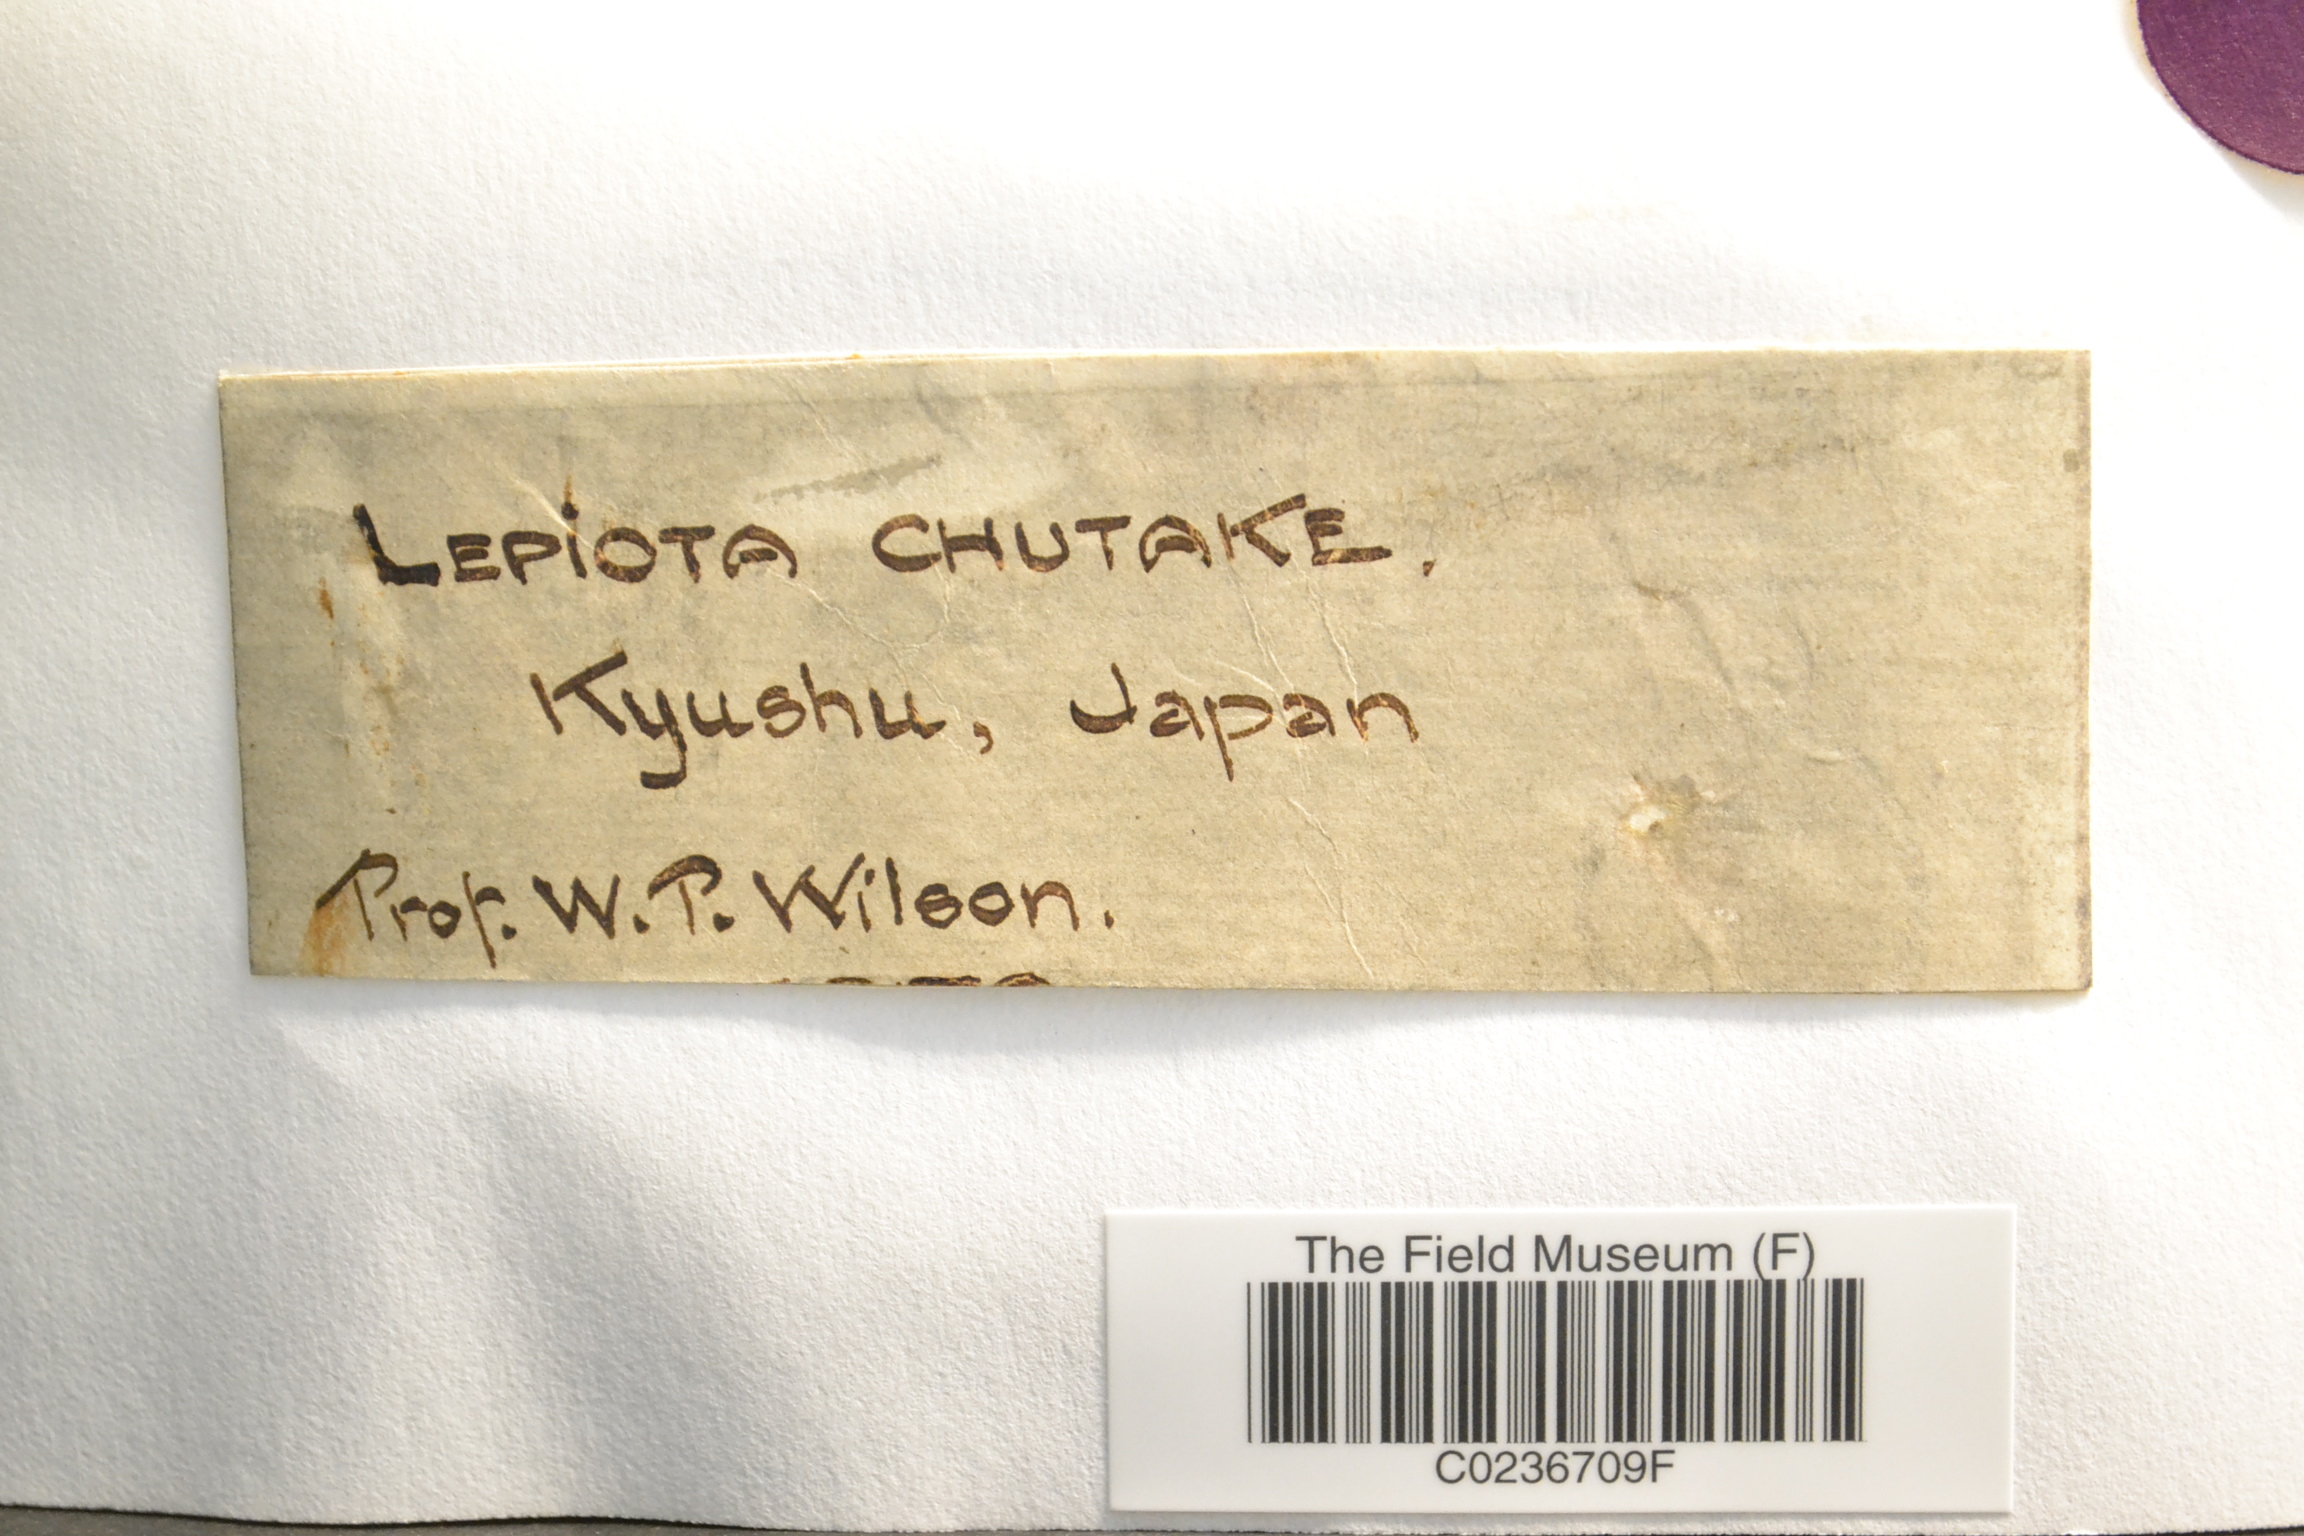 LEPIOTA CHUTAKE.
Kyushu, Japan
Prof. W. P. Wilson.
The Field Museum (F)
C0236709F